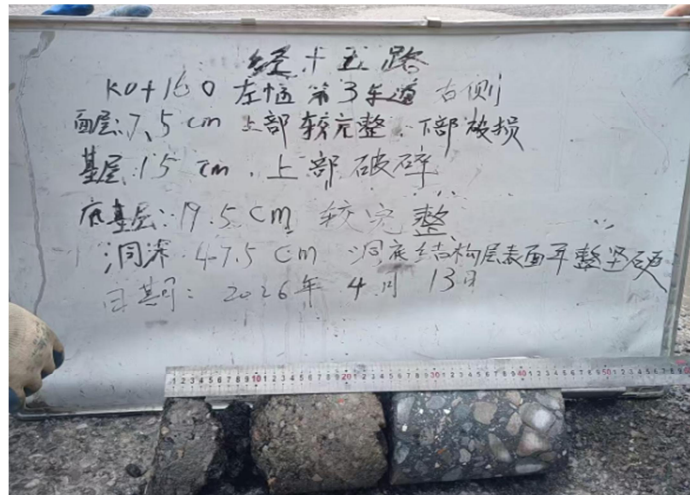 经十五路
K0+160 左幅 第3车道 右侧
面层:7.5cm 上部较完整.下部破损
基层:15cm.上部破碎
底基层:19.5cm 较完整
洞深.47.5cm 洞底结构层表面平整坚硬
日期:2026年4月13日